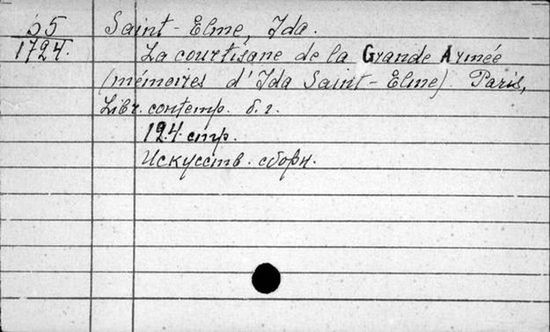 55
1724.
Saint-Elme, Ida.
La courtisane de la Grande Armée
(mémoires d'Ida Saint-Elme). Paris,
Libr. contemp. б. г.
124 стр.
Искусств. сборн.